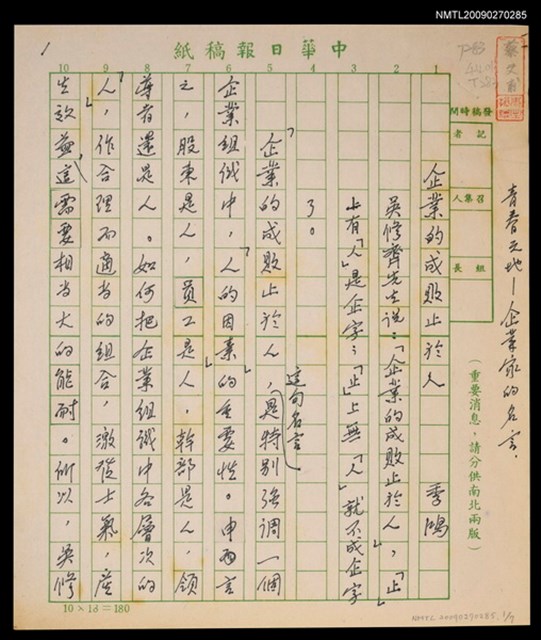 NMTL20090270285
中華日報稿紙
青春天地—企業家的名言.
發稿時間
記者
召集人
組長
（重要消息，請分供南北兩版）
1 2 3 4 5 6 7 8 9 10
企業的成敗止於人 季鴻
吳修齊先生說：「企業的成敗止於人，」「止」
上有「人」是企字；「止」上無「人」就不成企字
了。
「企業的成敗止於人，」這句名言，是特別強調一個
企業組織中，「人的因素」的重要性。申而言
之，股東是人，員工是人，幹部是人，領
導者還是人。如何把企業組織中各層次的
「人」，作合理而適當的組合，激發士氣，產
生效益，這需要相當大的能耐。所以，吳修
10×18=180
NMTL20090270285